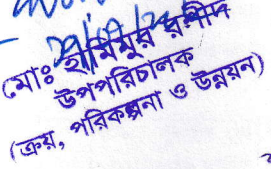 মোঃ হামিমুর রশীদ
উপপরিচালক
(ক্রয়, পরিকল্পনা ও উন্নয়ন)